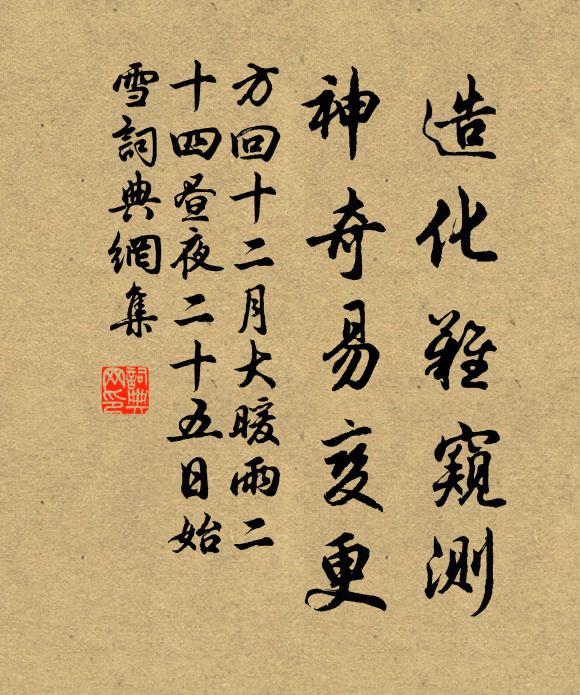 造化難窺測
神奇易變更
方回十二月大暖雨二
十四昼夜二十五日始
雪詞典網集
詞典
网印